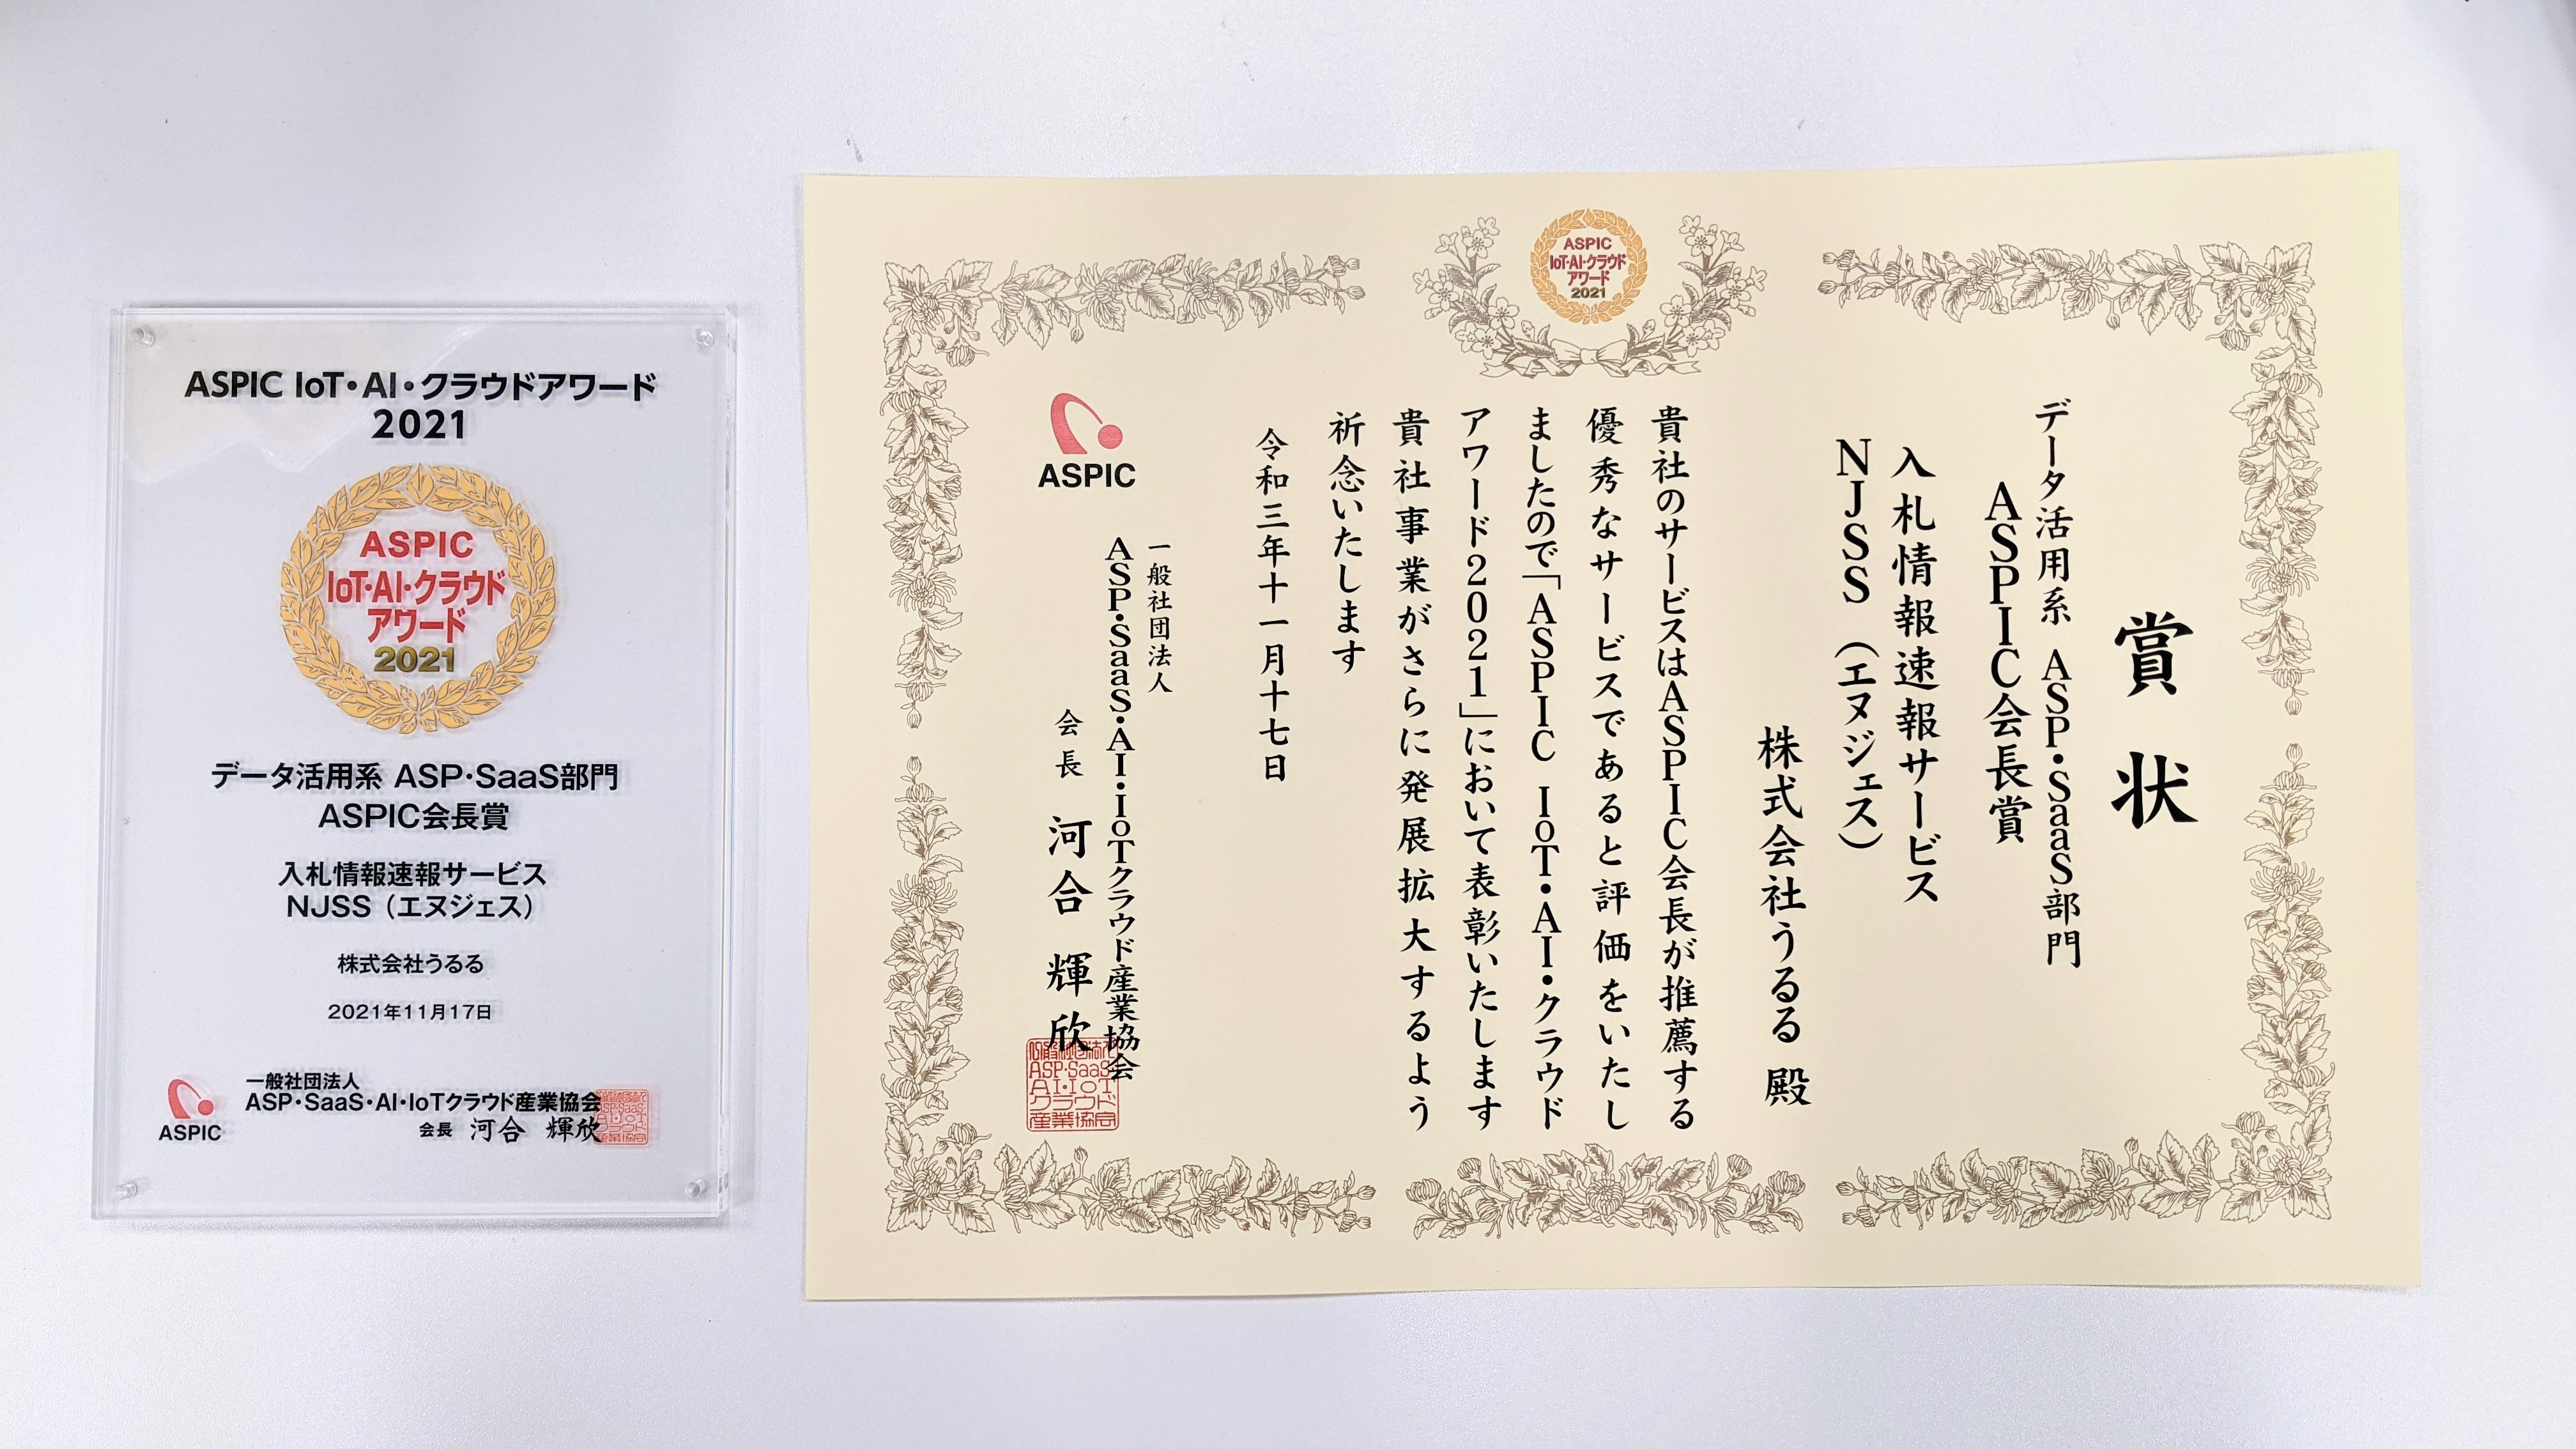 ASPIC IoT・AI・クラウドアワード
2021
ASPIC
IoT・AI・クラウド
アワード
2021
データ活用系 ASP・SaaS部門
ASPIC会長賞
入札情報速報サービス
NJSS（エヌジェス）
株式会社うるる
2021年11月17日
ASPIC
一般社団法人
ASP・SaaS・AI・IoTクラウド産業協会
会長 河合 輝欣
ASPIC
IoT・AI・クラウド
アワード
2021
賞状
データ活用系 ASP・SaaS部門
ASPIC会長賞
入札情報速報サービス
NJSS（エヌジェス）
株式会社うるる 殿
貴社のサービスはASPIC会長が推薦する
優秀なサービスであると評価をいたし
ましたので「ASPIC IoT・AI・クラウド
アワード2021」において表彰いたします
貴社事業がさらに発展拡大するよう
祈念いたします
令和三年十一月十七日
一般社団法人
ASP・SaaS・AI・IoTクラウド産業協会
会長 河合 輝欣
ASPIC
一般社団法人
ASP・SaaS
AI・IoT
クラウド
産業協会